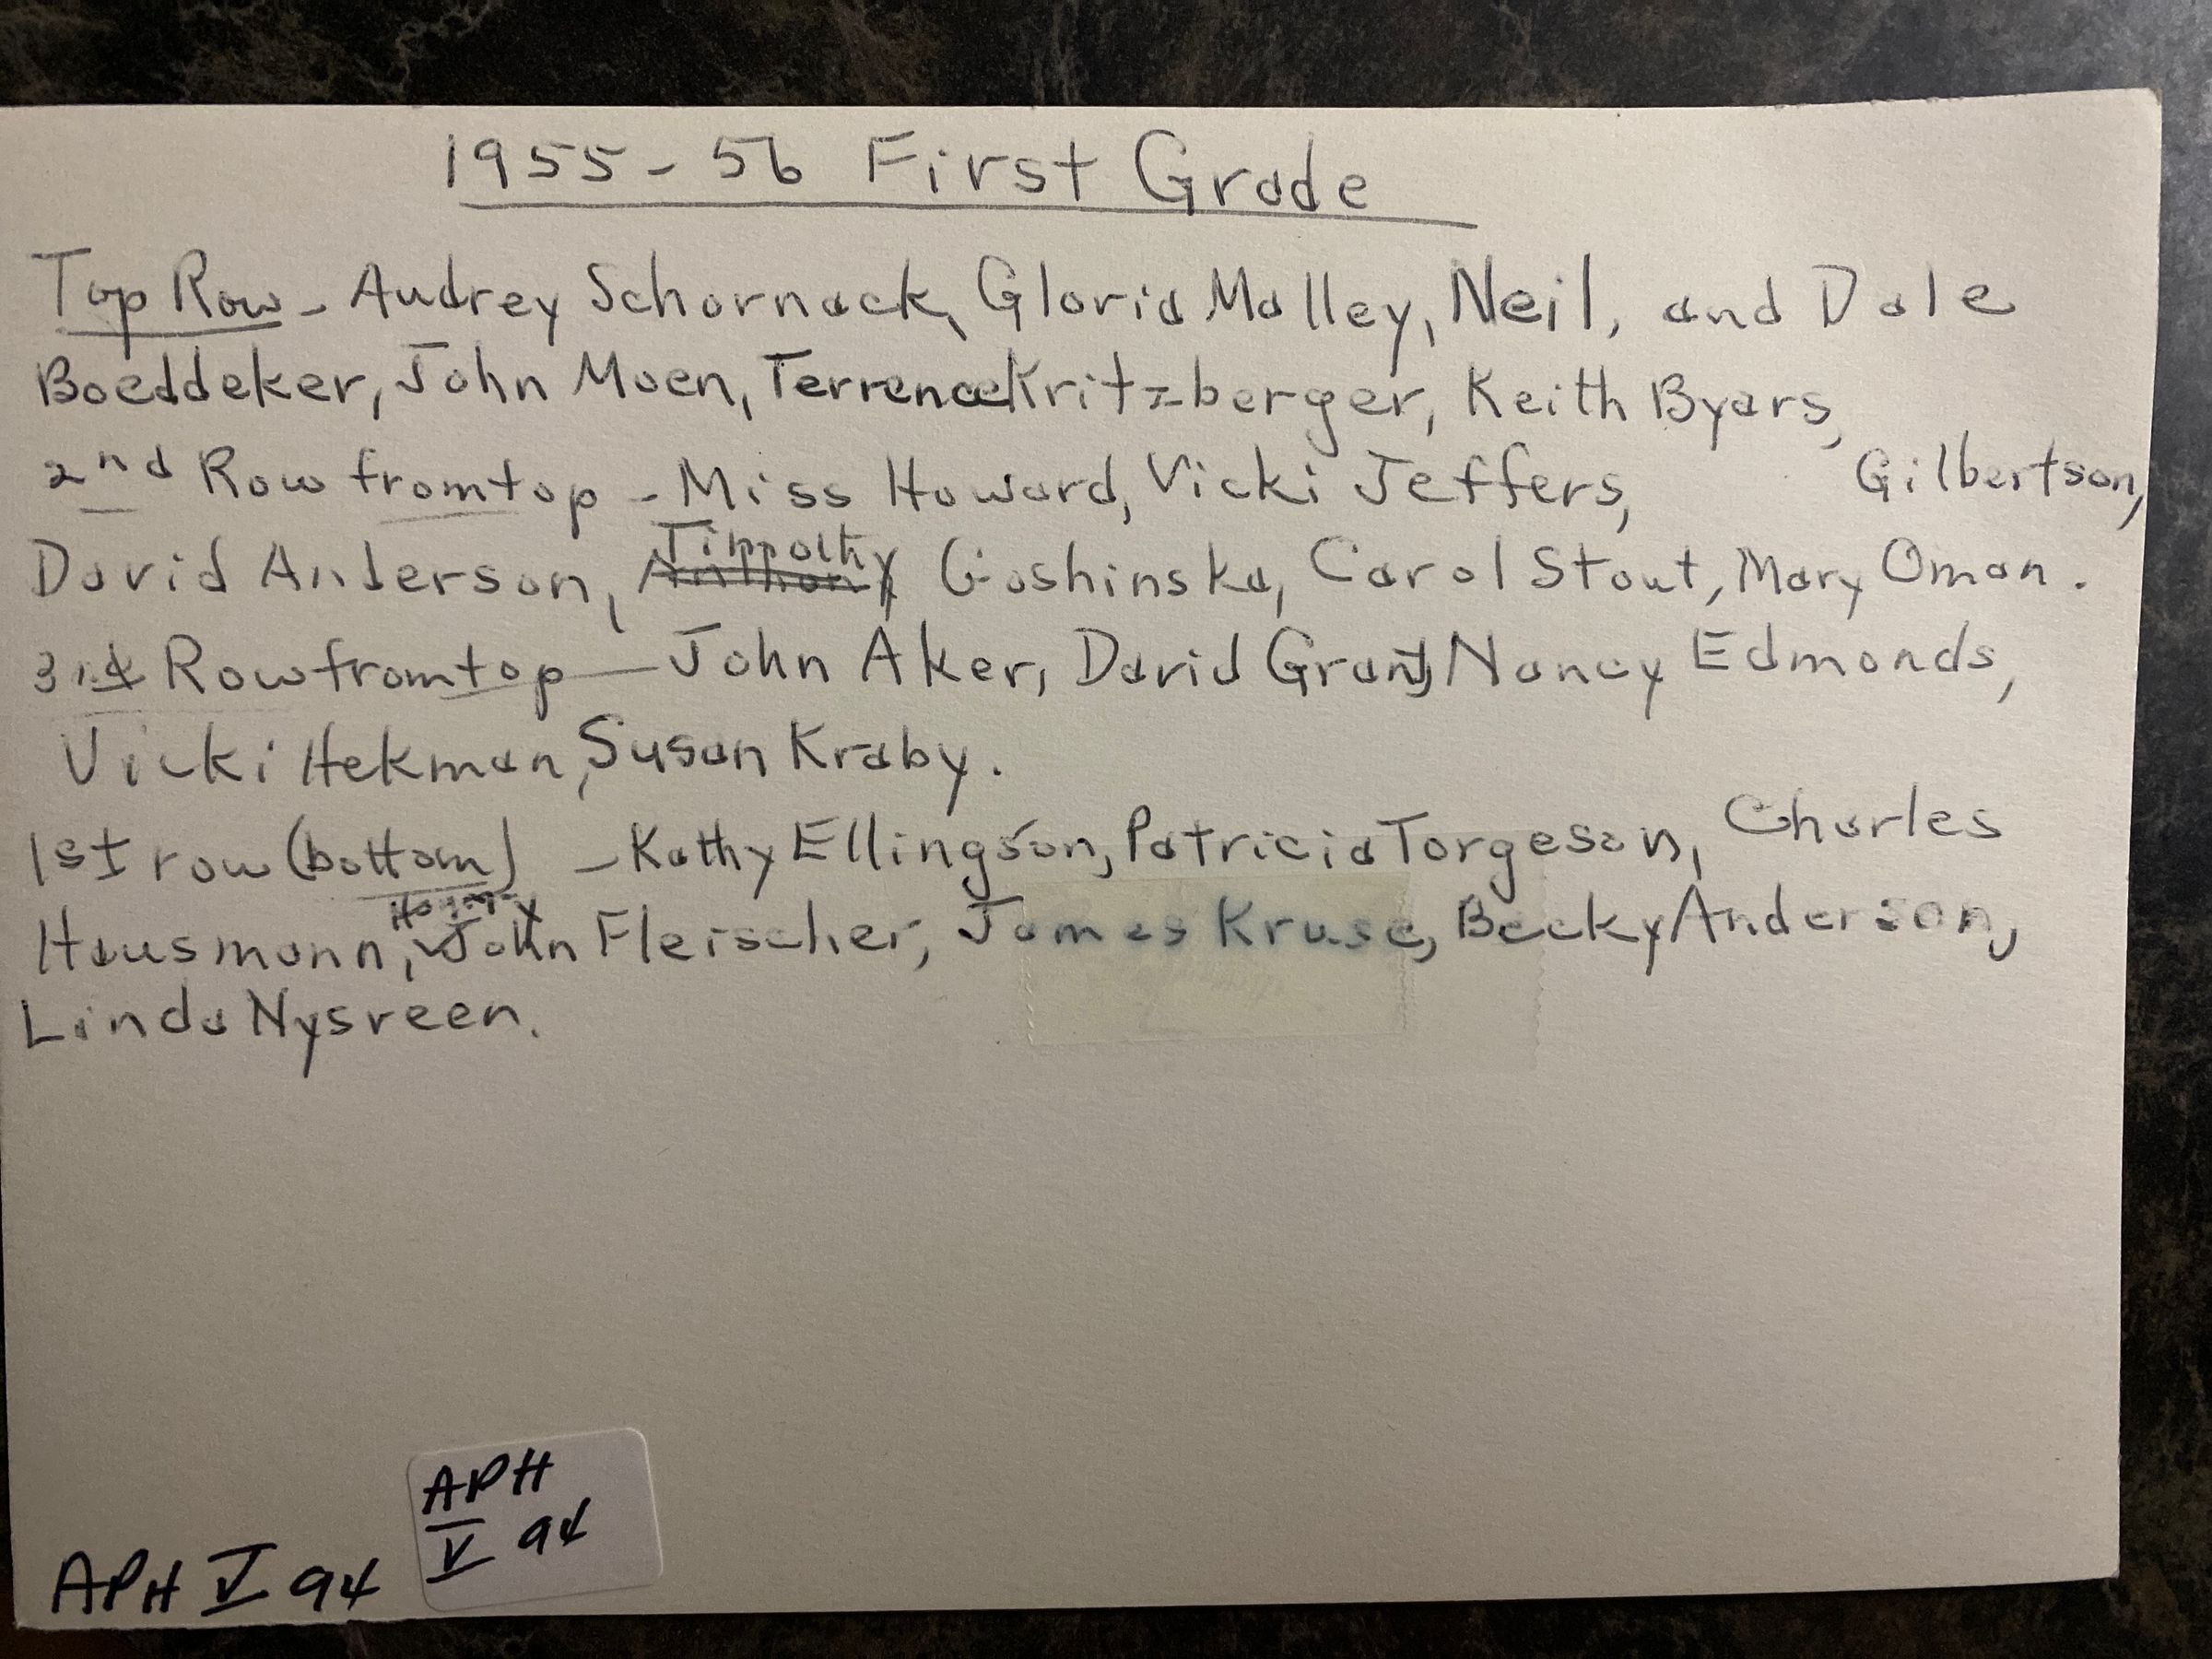 1955-56 First Grade
Top Row - Audrey Schornack, Gloria Malley, Neil, and Dale
Boeddeker, John Moen, Terrence Kritzberger, Keith Byars,
2nd Row from top - Miss Howard, Vicki Jeffers, Gilbertson,
David Anderson, Timothy Goshinska, Carol Stout, Mary Oman.
3rd Row from top - John Aker, David Grant, Nancy Edmonds,
Vicki Hekman, Susan Kraby.
1st row (bottom) - Kathy Ellingson, Patricia Torgeson, Charles
Hausmann, John Fleischer, James Kruse, Becky Anderson,
Linda Nysreen.
APH
V 94
APH V 94